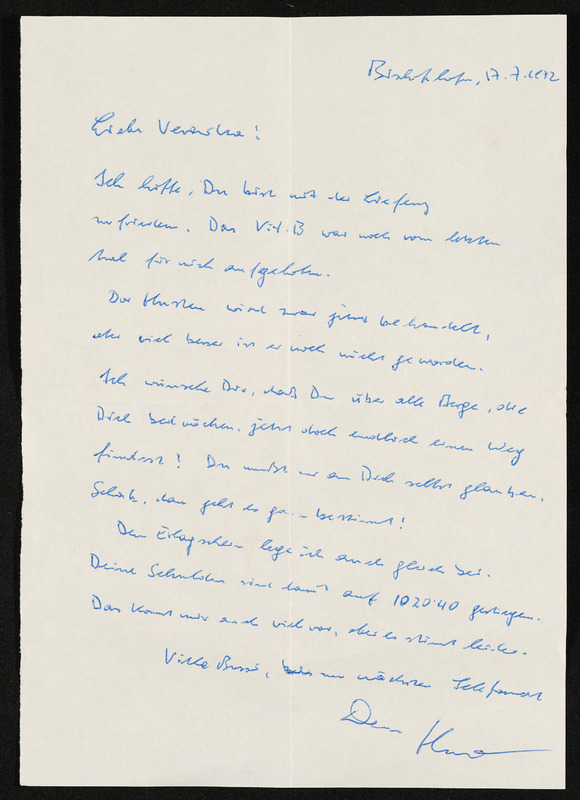 Bischofshofen, 17.7.1992
Liebe Veronika!
Ich hoffe, Du bist mit der Lieferung
zufrieden. Das Vit.B war noch vom letzten
Mal für mich aufgehoben.
Der Husten wird zwar jetzt behandelt,
aber viel besser ist er noch nicht geworden.
Ich wünsche Dir, daß Du über alle Berge, die
Dich bedrücken, jetzt doch endlich einen Weg
findest! Du mußt nur an Dich selbst glauben,
Schatz, dann geht es ganz bestimmt!
Den Erlagschein lege ich auch gleich bei.
Deine Schulden sind damit auf 1020.40 gestiegen.
Das kommt mir auch viel vor, aber es stimmt leider.
Viele Bussi, bis zum nächsten Telefonat
Dein